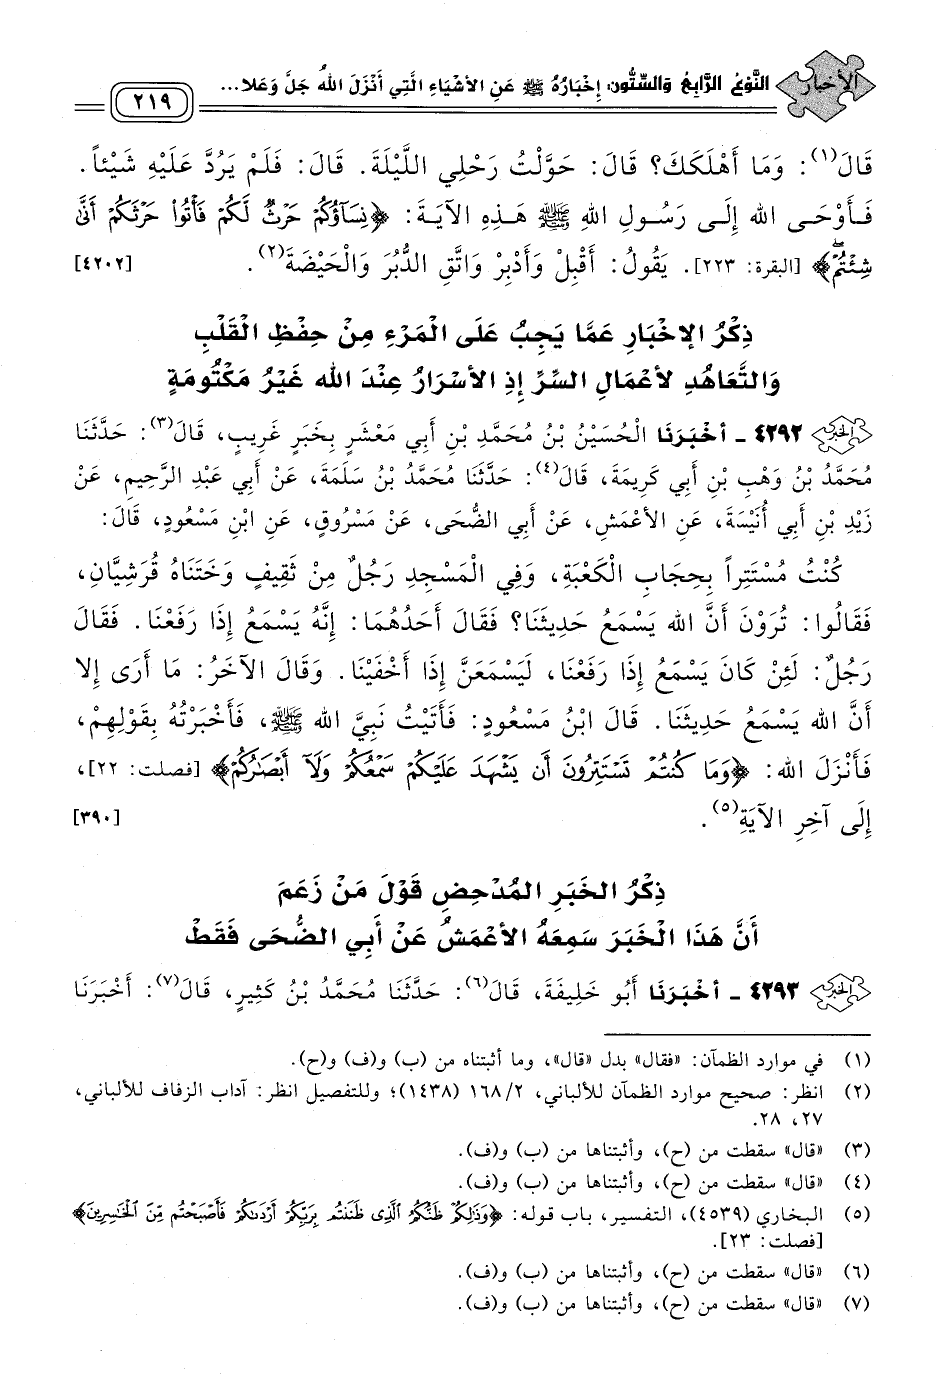 الأخبار
النَّوْعُ الرَّابِعُ وَالسِّتُّونَ: إِخْبَارُهُ ﷺ عَنِ الأَشْيَاءِ الَّتِي أَنْزَلَ اللهُ جَلَّ وَعَلا...
٢١٩
قَالَ(١): وَمَا أَهْلَكَكَ؟ قَالَ: حَوَّلْتُ رَحْلِي اللَّيْلَةَ. قَالَ: فَلَمْ يَرُدَّ عَلَيْهِ شَيْئاً.
فَأَوْحَى الله إِلَى رَسُولِ اللهِ ﷺ هَذِهِ الآيَةَ: ﴿نِسَآؤُكُمْ حَرْثٌ لَّكُمْ فَأْتُوا۟ حَرْثَكُمْ أَنَّىٰ
شِئْتُمْ﴾ [البقرة: ٢٢٣]. يَقُولُ: أَقْبِلْ وَأَدْبِرْ وَاتَّقِ الدُّبُرَ وَالْحَيْضَةَ(٢). [٤٢٠٢]
ذِكْرُ الإخْبَارِ عَمَّا يَجِبُ عَلَى الْمَرْءِ مِنْ حِفْظِ الْقَلْبِ
وَالتَّعَاهُدِ لأعْمَالِ السِّرِّ إِذِ الأسْرَارُ عِنْدَ الله غَيْرُ مَكْتُومَةٍ
٤٢٩٢ - أَخْبَرَنَا الْحُسَيْنُ بْنُ مُحَمَّدِ بْنِ أَبِي مَعْشَرٍ بِخَبَرٍ غَرِيبٍ، قَالَ(٣): حَدَّثَنَا
مُحَمَّدُ بْنُ وَهْبِ بْنِ أَبِي كَرِيمَةَ، قَالَ(٤): حَدَّثَنَا مُحَمَّدُ بْنُ سَلَمَةَ، عَنْ أَبِي عَبْدِ الرَّحِيمِ، عَنْ
زَيْدِ بْنِ أَبِي أُنَيْسَةَ، عَنِ الأَعْمَشِ، عَنْ أَبِي الضُّحَى، عَنْ مَسْرُوقٍ، عَنِ ابْنِ مَسْعُودٍ، قَالَ:
كُنْتُ مُسْتَتِراً بِحِجَابِ الْكَعْبَةِ، وَفِي الْمَسْجِدِ رَجُلٌ مِنْ ثَقِيفٍ وَخَتَنَاهُ قُرَشِيَّانِ،
فَقَالُوا: تُرَوْنَ أَنَّ الله يَسْمَعُ حَدِيثَنَا؟ فَقَالَ أَحَدُهُمَا: إِنَّهُ يَسْمَعُ إِذَا رَفَعْنَا. فَقَالَ
رَجُلٌ: لَئِنْ كَانَ يَسْمَعُ إِذَا رَفَعْنَا، لَيَسْمَعَنَّ إِذَا أَخْفَيْنَا. وَقَالَ الآخَرُ: مَا أَرَى إِلا
أَنَّ الله يَسْمَعُ حَدِيثَنَا. قَالَ ابْنُ مَسْعُودٍ: فَأَتَيْتُ نَبِيَّ الله ﷺ، فَأَخْبَرْتُهُ بِقَوْلِهِمْ،
فَأَنْزَلَ الله: ﴿وَمَا كُنتُمْ تَسْتَتِرُونَ أَن يَشْهَدَ عَلَيْكُمْ سَمْعُكُمْ وَلَآ أَبْصَٰرُكُمْ﴾ [فصلت: ٢٢]،
إِلَى آخِرِ الآيَةِ(٥). [٣٩٠]
ذِكْرُ الْخَبَرِ الْمُدْحِضِ قَوْلَ مَنْ زَعَمَ
أَنَّ هَذَا الْخَبَرَ سَمِعَهُ الأعْمَشُ عَنْ أَبِي الضُّحَى فَقَطْ
٤٢٩٣ - أَخْبَرَنَا أَبُو خَلِيفَةَ، قَالَ(٦): حَدَّثَنَا مُحَمَّدُ بْنُ كَثِيرٍ، قَالَ(٧): أَخْبَرَنَا
(١) في موارد الظمآن: «فقال» بدل «قال»، وما أثبتناه من (ب) و(ف) و(ح).
(٢) انظر: صحيح موارد الظمآن للألباني، ١٦٨/٢ (١٤٣٨)؛ وللتفصيل انظر: آداب الزفاف للألباني،
٢٧، ٢٨.
(٣) «قال» سقطت من (ح)، وأثبتناها من (ب) و(ف).
(٤) «قال» سقطت من (ح)، وأثبتناها من (ب) و(ف).
(٥) البخاري (٤٥٣٩)، التفسير، باب قوله: ﴿وَذَٰلِكُمْ ظَنُّكُمُ ٱلَّذِى ظَنَنتُم بِرَبِّكُمْ أَرْدَىٰكُمْ فَأَصْبَحْتُم مِّنَ ٱلْخَٰسِرِينَ﴾
[فصلت: ٢٣].
(٦) «قال» سقطت من (ح)، وأثبتناها من (ب) و(ف).
(٧) «قال» سقطت من (ح)، وأثبتناها من (ب) و(ف).